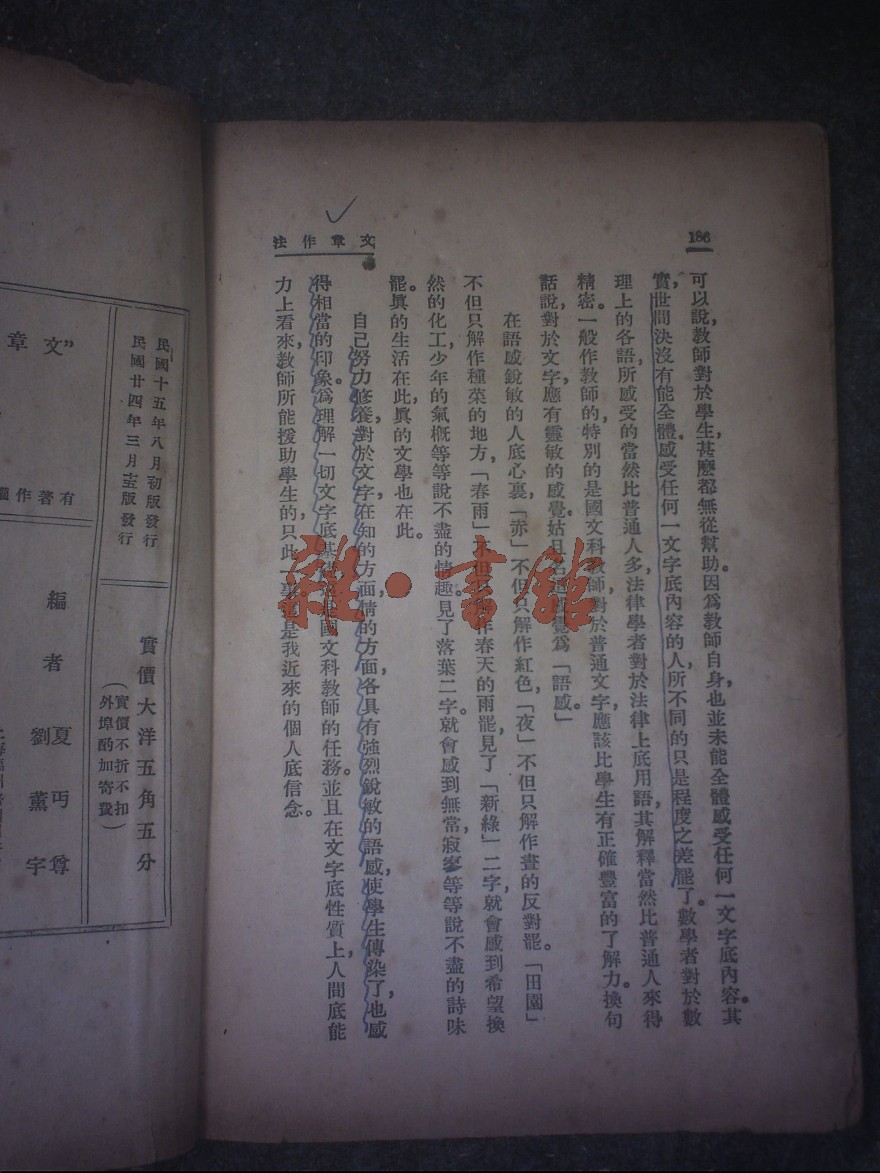 186
文章作法
可以說，教師對於學生，甚麼都無從幫助。因爲教師自身，也並未能全體感受任何一文字底內容。其
實，世間決沒有能全體感受任何一文字底內容的人，所不同的只是程度之差罷了。數學者對於數
理上的各語，所感受的當然比普通人多，法律學者對於法律上底用語，其解釋當然比普通人來得
精密。一般作教師的，特別的是國文科教師，對於普通文字，應該比學生有正確豐富的了解力。換句
話說，對於文字，應有靈敏的感覺。姑且名這感覺爲「語感」。
在語感銳敏的人底心裏，「赤」不但只解作紅色，「夜」不但只解作晝的反對罷。「田園」
不但只解作種菜的地方，「春雨」不但只解作春天的雨罷。見了「新綠」二字，就會感到希望換
然的化工，少年的氣概等等說不盡的情趣。見了落葉二字，就會感到無常，寂寥等等說不盡的詩味
罷。眞的生活在此，眞的文學也在此。
自己努力修養，對於文字，在知的方面，情的方面，各具有強烈銳敏的語感，使學生傳染了，也感
得相當的印象。爲理解一切文字底基礎，這是國文科教師的任務。並且在文字底性質上，人間底能
力上看來，教師所能援助學生的，只此一事。這是我近來的個人底信念。
“文
章
有著作權
民國十五年八月初版發行
民國廿四年三月十五版發行
編者
夏丏尊
劉薰宇
實價大洋五角五分
（實價不折不扣
外埠酌加寄費）
雜·書館